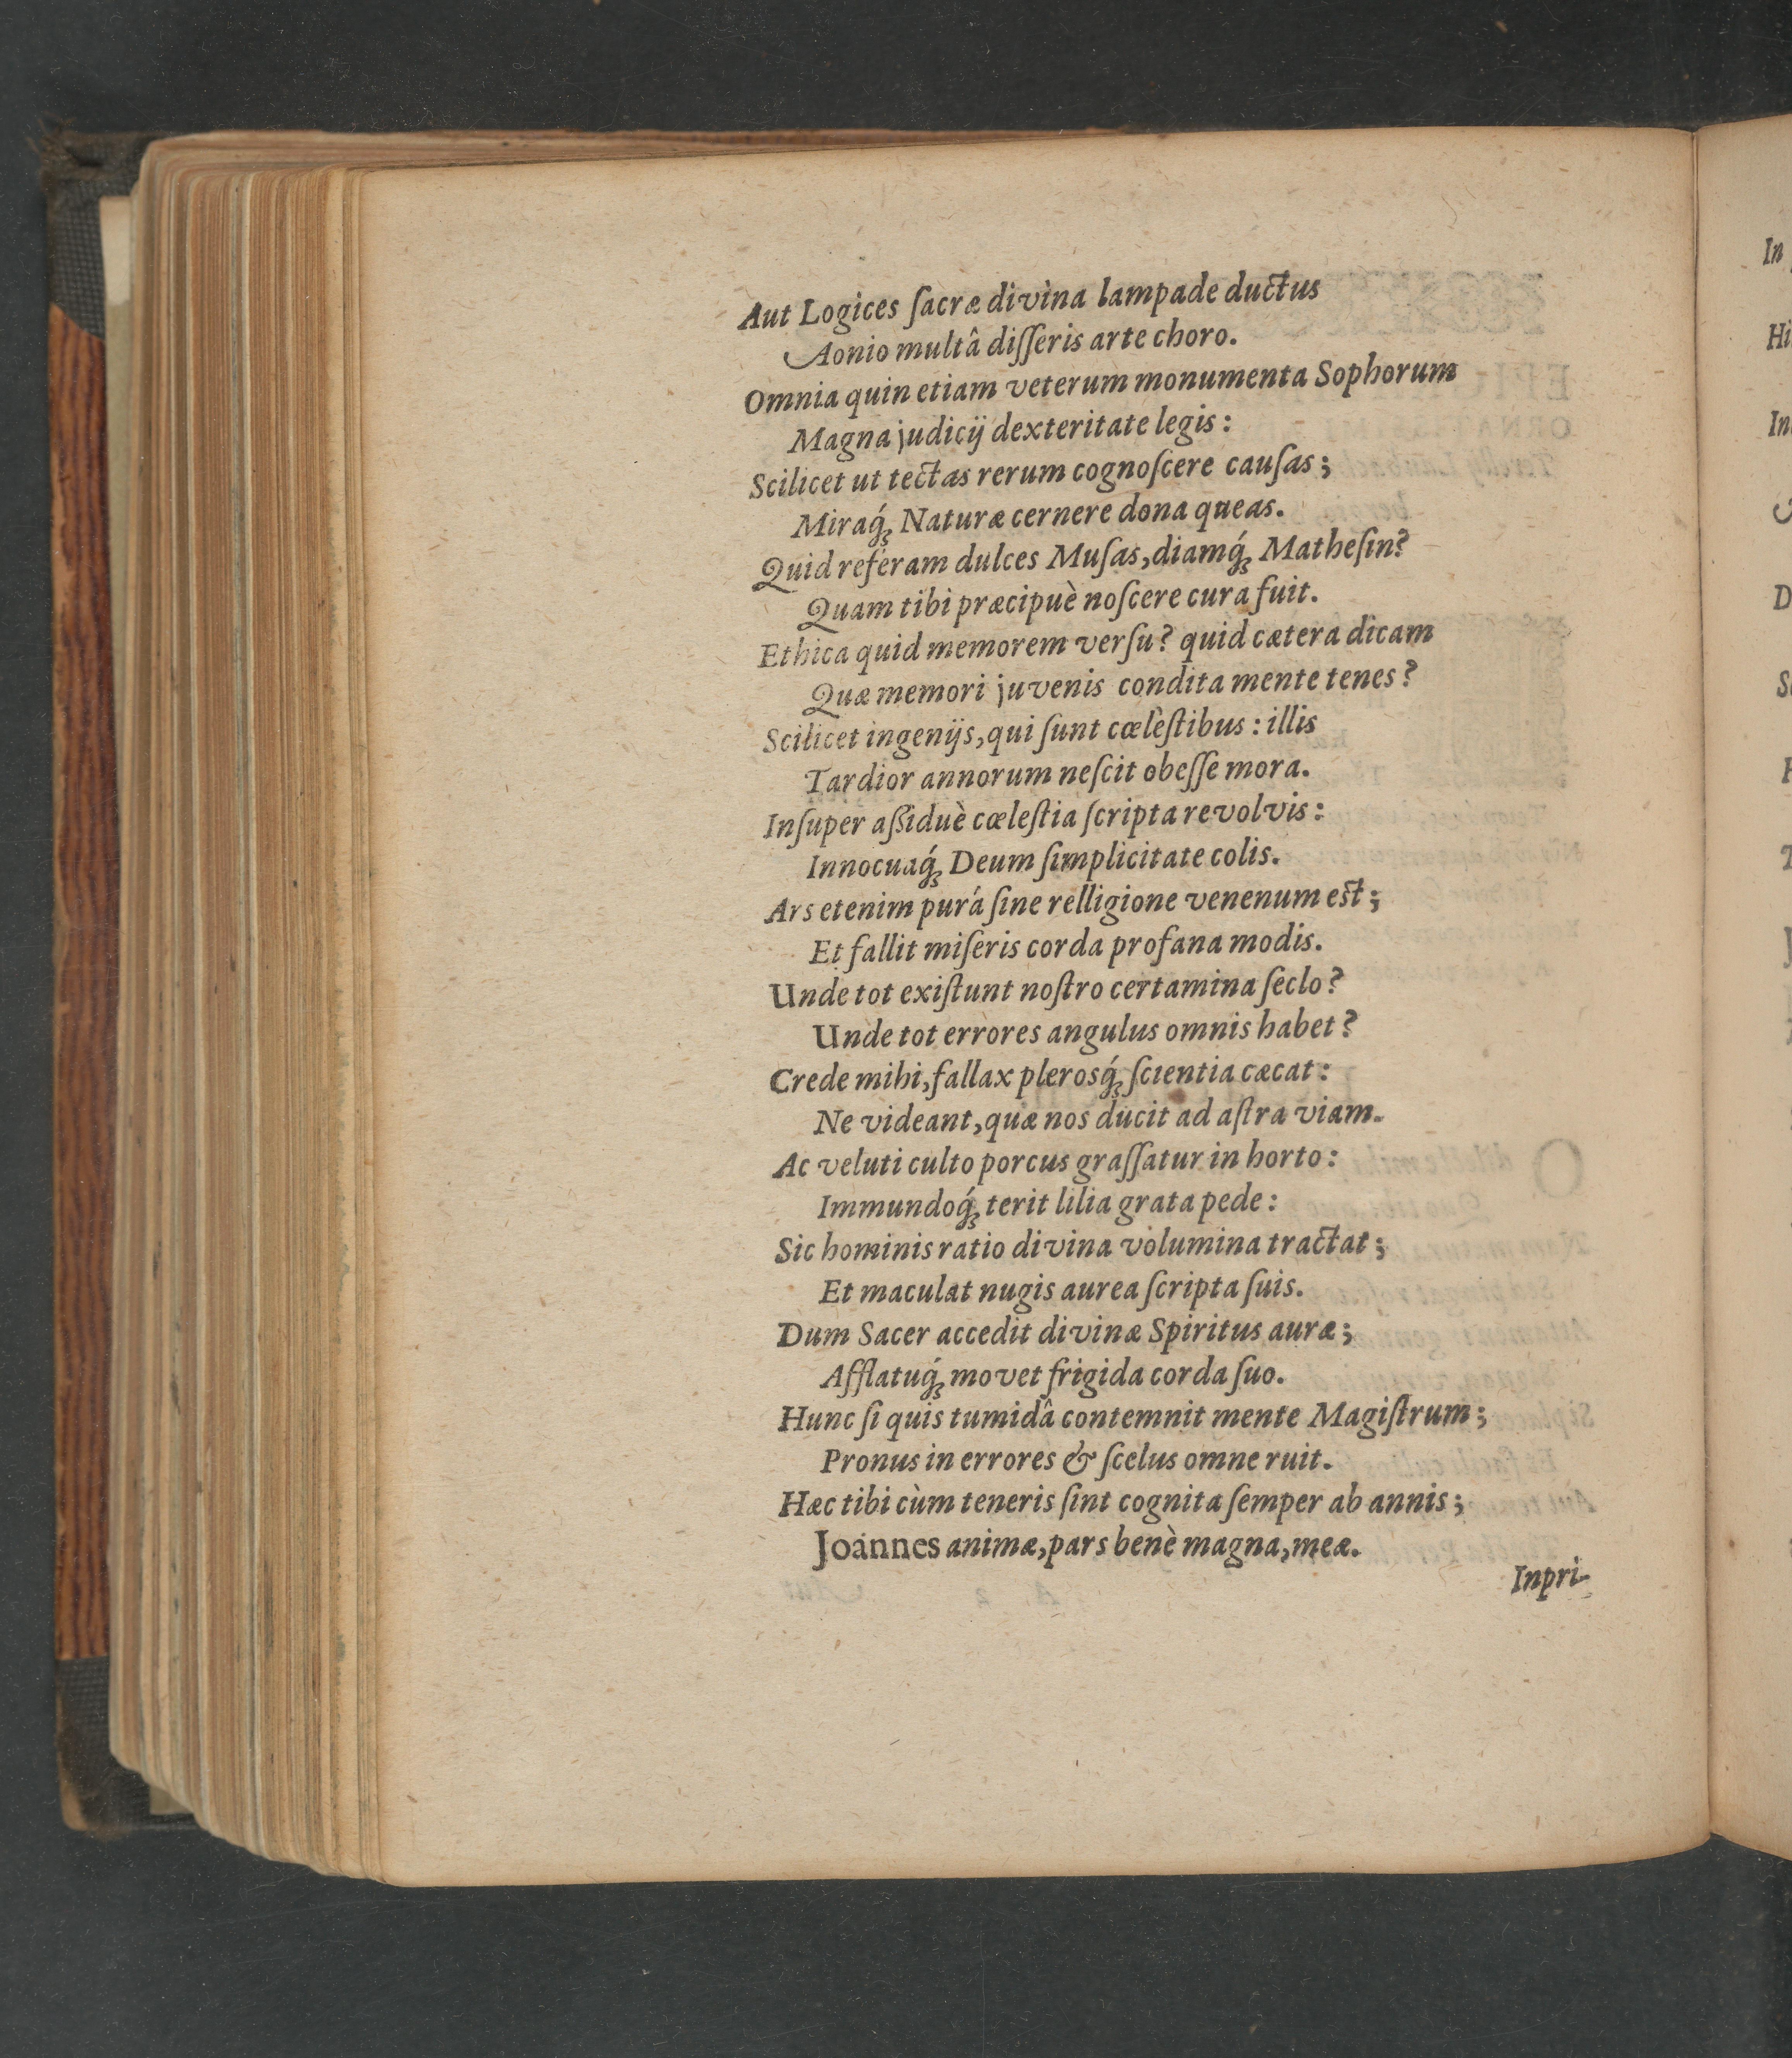 Aut Logices ſacræ divina lampade ductus
Aonio multâ diſſeris arte choro.
Omnia quin etiam veterum monumenta Sophorum
Magna judicij dexteritate legis:
Scilicet ut tectas rerum cognoſcere cauſas;
Miraq́; Naturæ cernere dona queas.
Quid referam dulces Muſas, diamq́; Matheſin?
Quam tibi præcipuè noſcere cura fuit.
Ethica quid memorem verſu? quid cætera dicam
Quæ memori juvenis condita mente tenes?
Scilicet ingenijs, qui ſunt cœleſtibus: illis
Tardior annorum neſcit obeſſe mora.
Inſuper aßiduè cœleſtia ſcripta revolvis:
Innocuaq́; Deum ſimplicitate colis.
Ars etenim purá ſine relligione venenum est;
Et fallit miſeris corda profana modis.
Unde tot exiſtunt noſtro certamina ſeclo?
Unde tot errores angulus omnis habet?
Crede mihi, fallax plerosq́; ſcientia cæcat:
Ne videant, quæ nos ducit ad aſtra viam.
Ac veluti culto porcus graſſatur in horto:
Immundoq́; terit lilia grata pede:
Sic hominis ratio divina volumina tractat;
Et maculat nugis aurea ſcripta ſuis.
Dum Sacer accedit divinæ Spiritus auræ;
Afflatuq́; movet frigida corda ſuo.
Hunc ſi quis tumidâ contemnit mente Magiſtrum;
Pronus in errores & ſcelus omne ruit.
Hæc tibi cùm teneris ſint cognita ſemper ab annis;
Joannes animæ, pars benè magna, meæ.
Inpri-
In
Hi
D